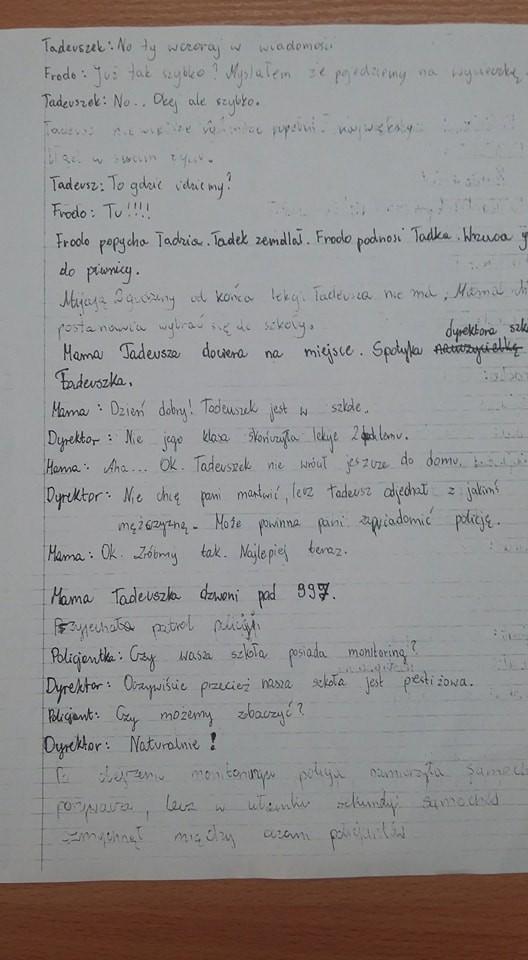 Tadeuszek: No ty wczoraj w wiadomości
Frodo: Już tak szybko? Myslałem że pojedziemy na wycieczkę.
Tadeuszek: No.. Okej ale szybko.
Tadeusz nie popełnił największy
błąd w swoim życiu.
Tadeusz: To gdzie idziemy?
Frodo: Tu!!!!
Frodo popycha Tadzia. Tadek zemdlał. Frodo podnosi Tadka. Wrzuca
do piwnicy.
Mijają 2 godziny od końca lekcji Tadeusza nie ma. Mama
postanawia wybrać się do szkoły.
dyrektora
Mama Tadeusza dociera na miejsce. Spotyka nauczycielkę
Tadeuszka.
Mama: Dzień dobry! Tadeuszek jest w szkole.
Dyrektor: Nie jego klasa skończyła lekcje 2h temu.
Mama: Aha... Ok. Tadeuszek nie wrócił jeszcze do domu.
Dyrektor: Nie chcę pani martwić, lecz Tadeusz odjechał z jakimś
mężczyzną. Może powinna pani zawiadomić policję.
Mama: Ok. Zróbmy tak. Najlepiej teraz.
Mama Tadeuszka dzwoni pod 997.
Przyjechała patrol policji
Policjantka: Czy wasza szkoła posiada monitoring?
Dyrektor: Oczywiście przecież nasza szkoła jest prestiżowa.
Policjant: Czy możemy zobaczyć?
Dyrektor: Naturalnie!
Po monitoringu policja namierzyła
porywacza, lecz w ułamku sekundy samochód
czmychnął między oczami policjantów